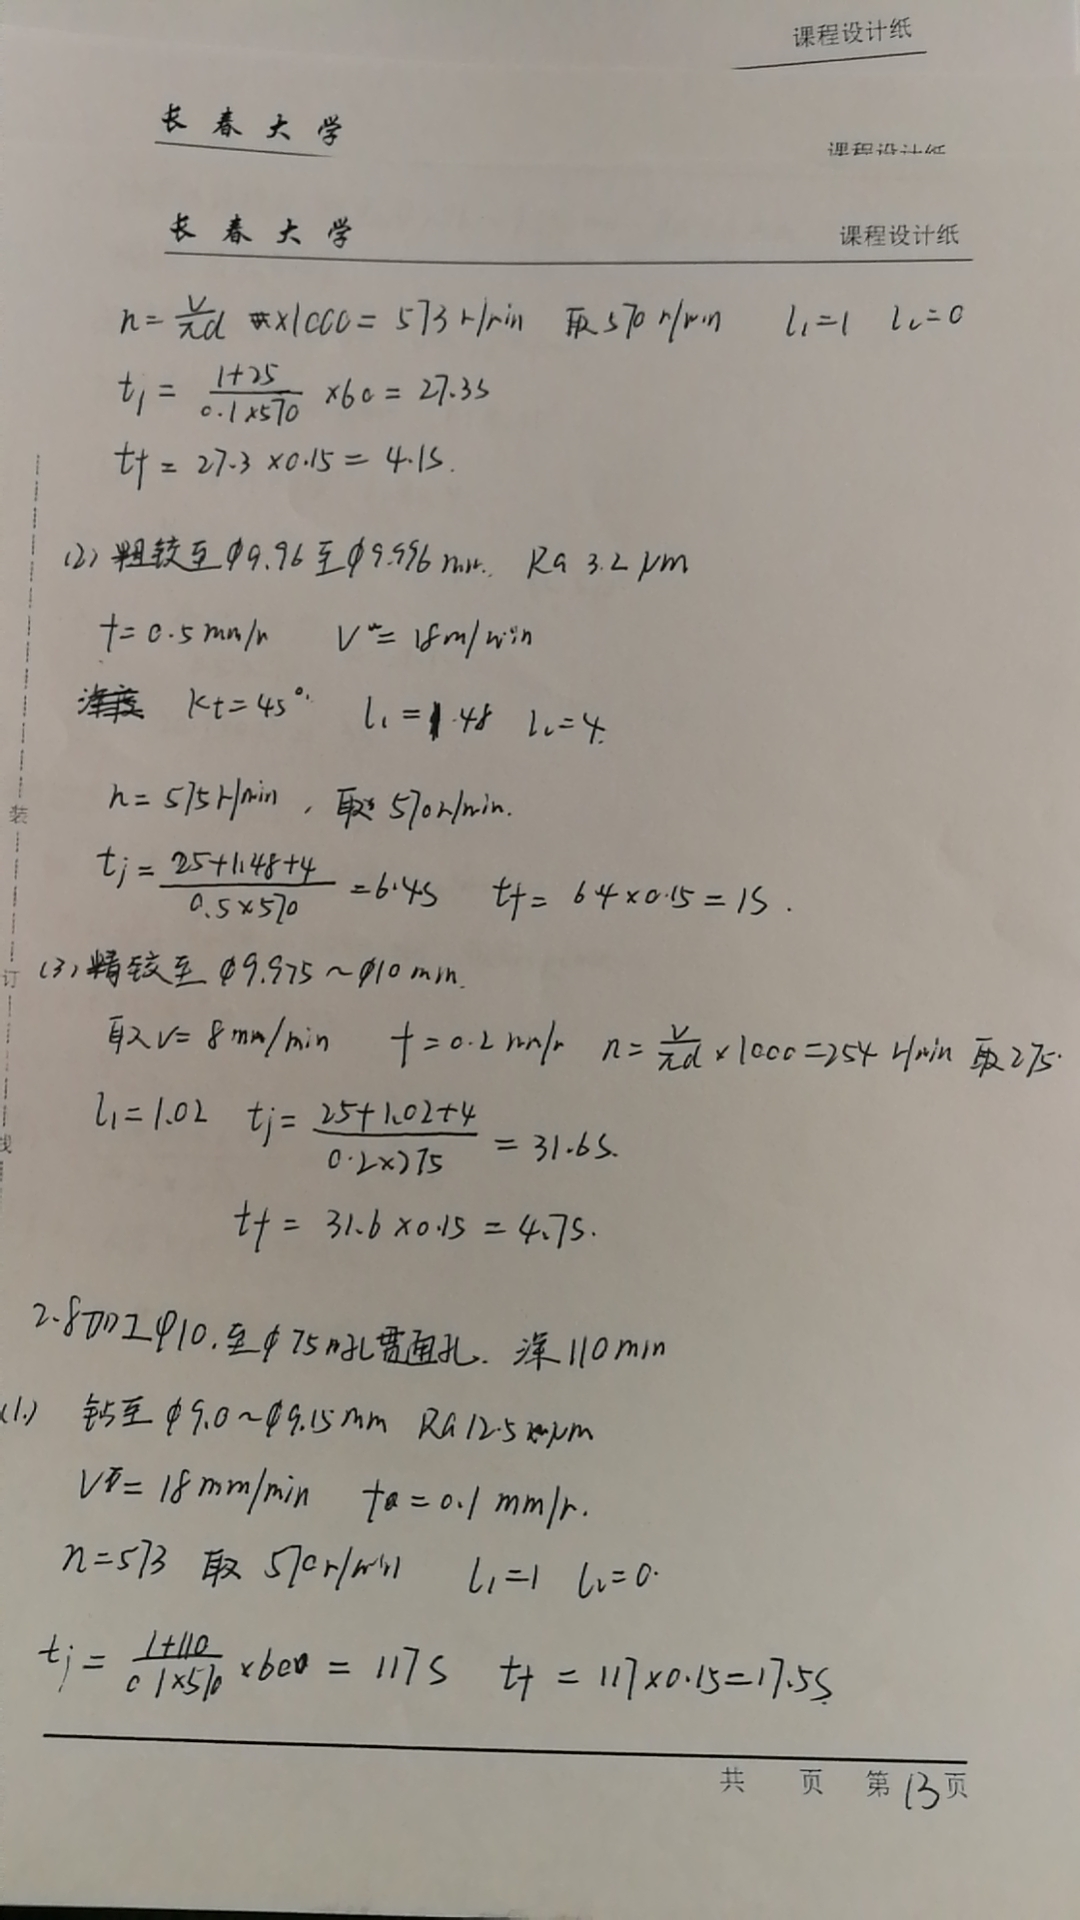 课程设计纸
长春大学 课程设计纸
长春大学 课程设计纸
n = v/πd ×1000 = 573 r/min 取570 r/min l₁=1 l₂=0
tj = (1+25)/(0.1×570) ×60 = 27.3S
tf = 27.3 ×0.15 = 4.1S.
(2) 粗铰至 φ9.96至φ9.996 mm. Ra 3.2 μm
f=0.5 mm/r V = 18m/min
kt=45°. l₁=1.48 l₂=4.
n= 575 r/min, 取 570r/min.
tj = (25+1.48+4)/(0.5×570) = 6.4S tf = 6.4×0.15 = 1S.
(3) 精铰至 φ9.975~φ10 mm.
取V= 8mm/min f=0.2 mm/r n= v/πd ×1000=254 r/min 取275.
l₁=1.02 tj= (25+1.02+4)/(0.2×275) = 31.6S.
tf = 31.6 ×0.15 = 4.7S.
2.8加工φ10.至φ75 孔贯通孔. 深110mm
(1.) 钻至 φ9.0~φ9.15mm Ra12.5 μm
V = 18mm/min f = 0.1 mm/r.
n=573 取 570r/min l₁=1 l₂=0.
tj = (1+110)/(0.1×570) ×60 = 117S tf = 117×0.15=17.5S
共 页 第13页
装
订
线